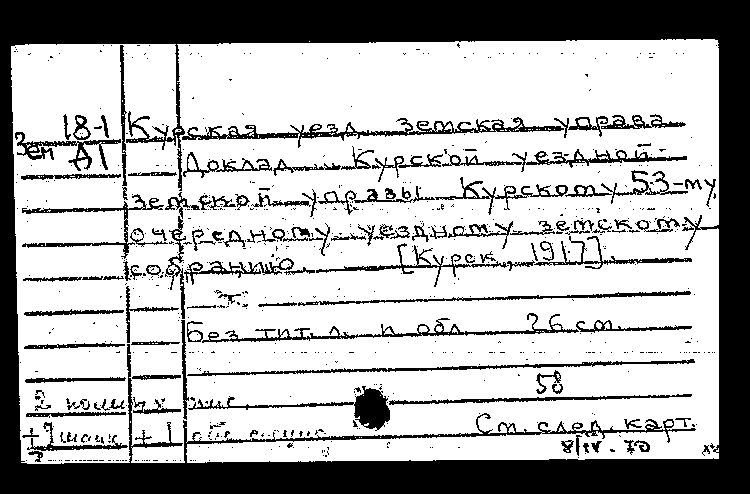 18-1 Курская уезд. земская управа
Зем А1 Доклад ... Курской уездной
земской управы Курскому 53-му
очередному уездному земскому
собранию. [Курск, 1917].
Без тит. л. и обл. 26 см.
58
2
+ 1 + 1 См. след. карт.
8/IV. 70